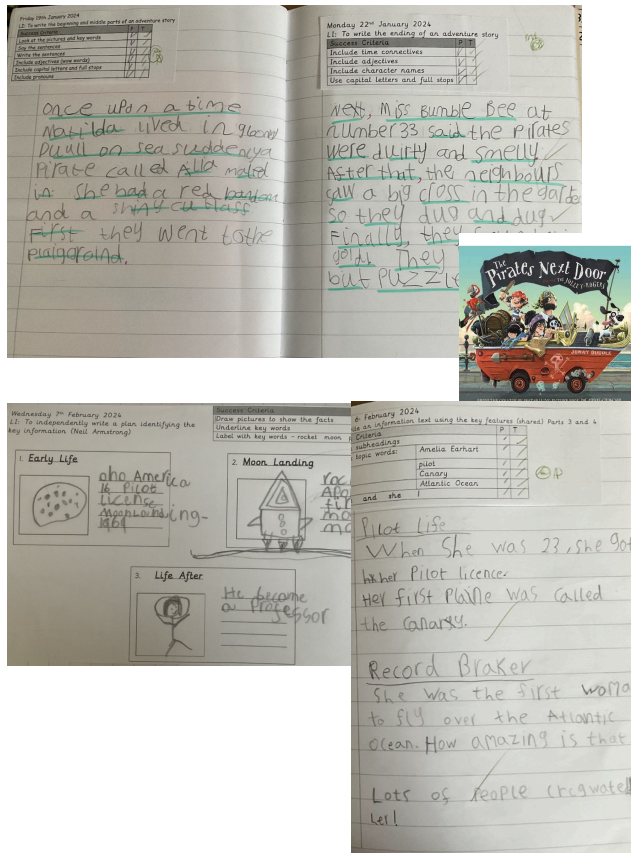 Friday 19th January 2024
LI: To write the beginning and middle parts of an adventure story
Success Criteria P T
Look at the pictures and key words
Say the sentences
Write the sentences
Include adjectives (wow words)
Include capital letters and full stops
Include pronouns
Once upon a time
Matilda lived in gloomy
Duull on sea suddenya
Pirate called
in. She had a red
and a shiny cutlass
First they went to the
Monday 22nd January 2024
LI: To write the ending of an adventure story
Success Criteria P T
Include time connectives
Include adjectives
Include character names
Use capital letters and full stops
Next, Miss Bumble Bee at
number 33 said the Pirates
were duirty and smelly.
After that, the neighbours
saw a big cross in the garde
so they dug and dug
Finally, they
They
but PUZZLE
The
Pirates Next Door
THE JOLLEY-ROGERS
JONNY DUDDLE
Wednesday 7th February 2024
LI: To independently write a plan identifying the
key information (Neil Armstrong)
Success Criteria
Draw pictures to show the facts
Underline key words
Label with key words - rocket moon
1. Early Life
oho America
16 Pilot
license
1969
2. Moon Landing
3. Life After
He become
a Professor
6 February 2024
an information text using the key features (shared) Parts 3 and 4
Criteria P T
subheadings
topic words: Amelia Earhart
pilot
Canary
Atlantic Ocean
and she I
Pilot Life
When She was 23, she got
her Pilot licence.
Her first Plaine was called
the canary.
Record Braker
She was the first woma
to fly over the Atlantic
Ocean. How amazing is that
Lots of People